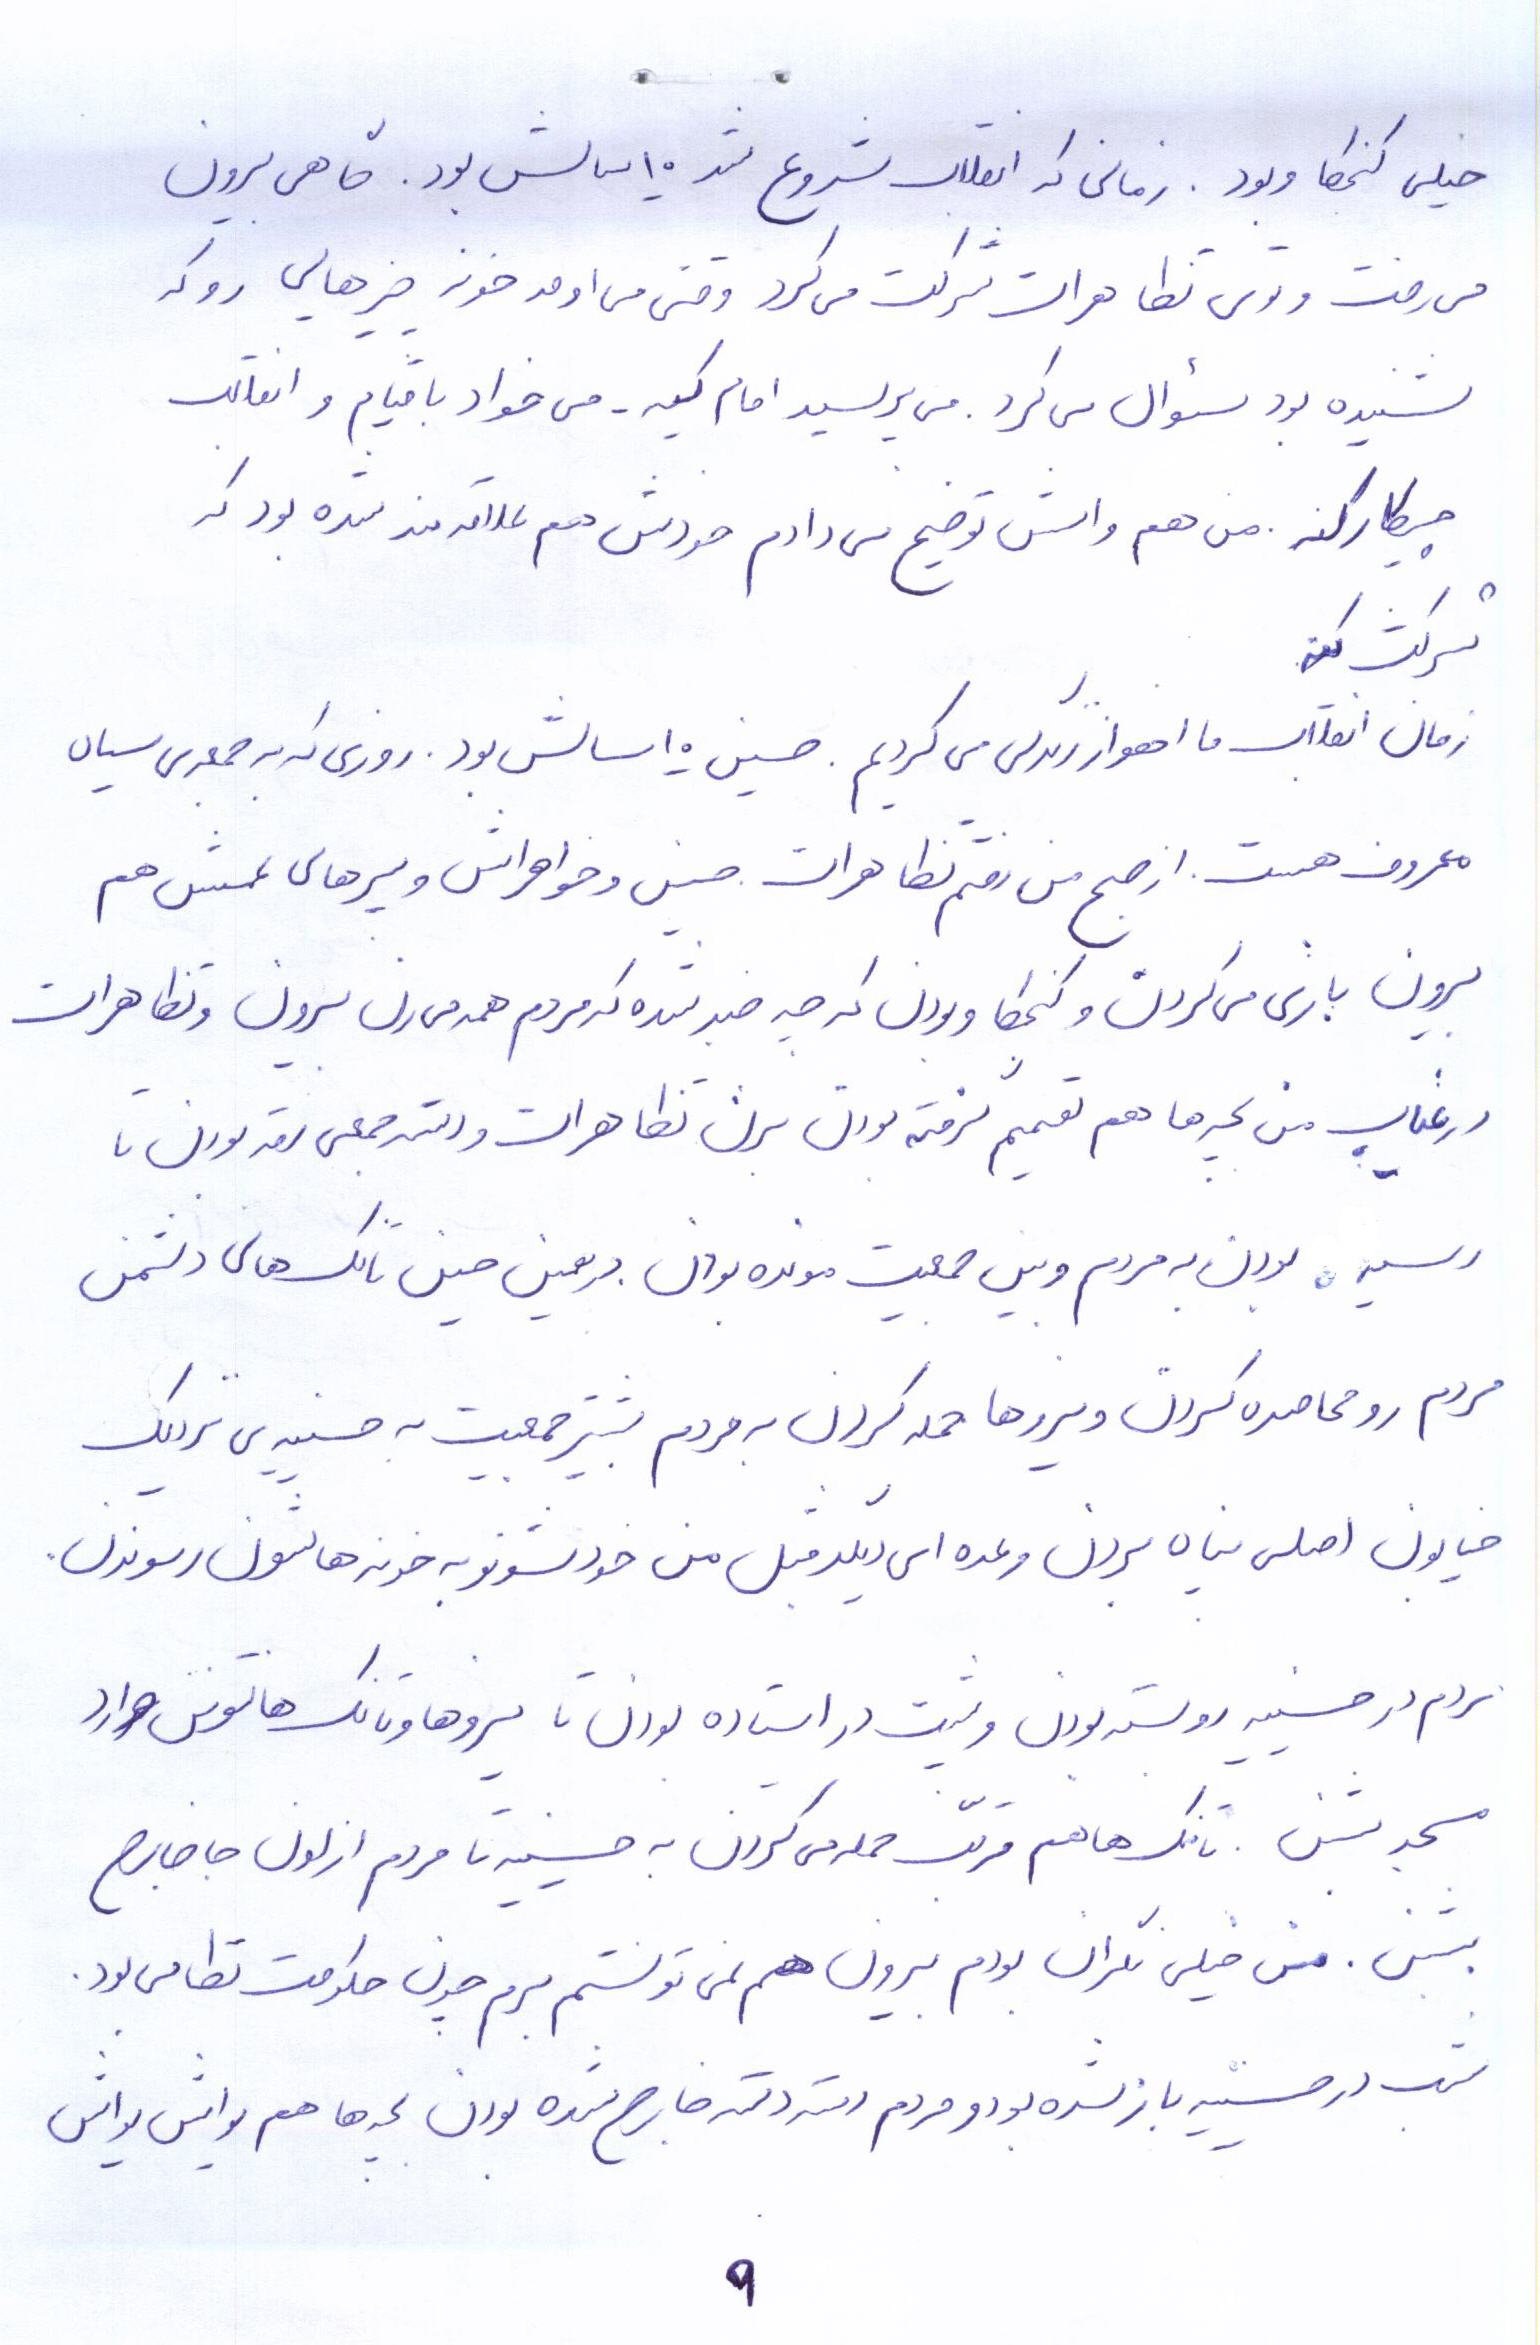 خیلی کنجکاو بود. زمانی که انقلاب شروع شد ۱۰ سالش بود. گاهی بیرون
می رفت و توی تظاهرات شرکت می کرد وقتی می اومد خونه چیزهایی رو که
شنیده بود سئوال می کرد. می پرسید امام کیه - می خواد با قیام و انقلاب
چیکار کنه. من هم واسش توضیح می دادم خودش هم علاقه مند شده بود که
شرکت کنه
زمان انقلاب ما اهواز زندگی می کردیم. حسین ۱۰ سالش بود. روزی که به جمعه ی سیاه
معروف هست. از صبح من رفتم تظاهرات. حسین و خواهراش و پسرهای عمش هم
بیرون بازی می کردن و کنجکاو بودن که چه خبر شده که مردم همه می رن بیرون و تظاهرات
در غیاب من بچه ها هم تصمیم گرفته بودن برن تظاهرات و دسته جمعی رفته بودن تا
رسیده بودن به مردم و بین جمعیت مونده بودن. در همین حین تانک های دشمن
مردم رو محاصره کردن و نیروها حمله کردن به مردم بیشتر جمعیت به حسینیه ی نزدیک
خیابون اصلی پناه بردن و عده ای دیگه مثل من خودشونو به خونه هاشون رسوندن.
مردم در حسینیه رو بسته بودن و پشت در ایستاده بودن تا نیروها و تانک ها نتونن وارد
مسجد بشن. تانک ها هم مرتب حمله می کردن به حسینیه تا مردم از اون جا خارج
بشن. من خیلی نگران بودم بیرون هم نمی تونستم برم چون حکومت نظامی بود.
شب در حسینیه باز شده بود و مردم دسته دسته خارج شده بودن بچه ها هم یواش یواش
۹